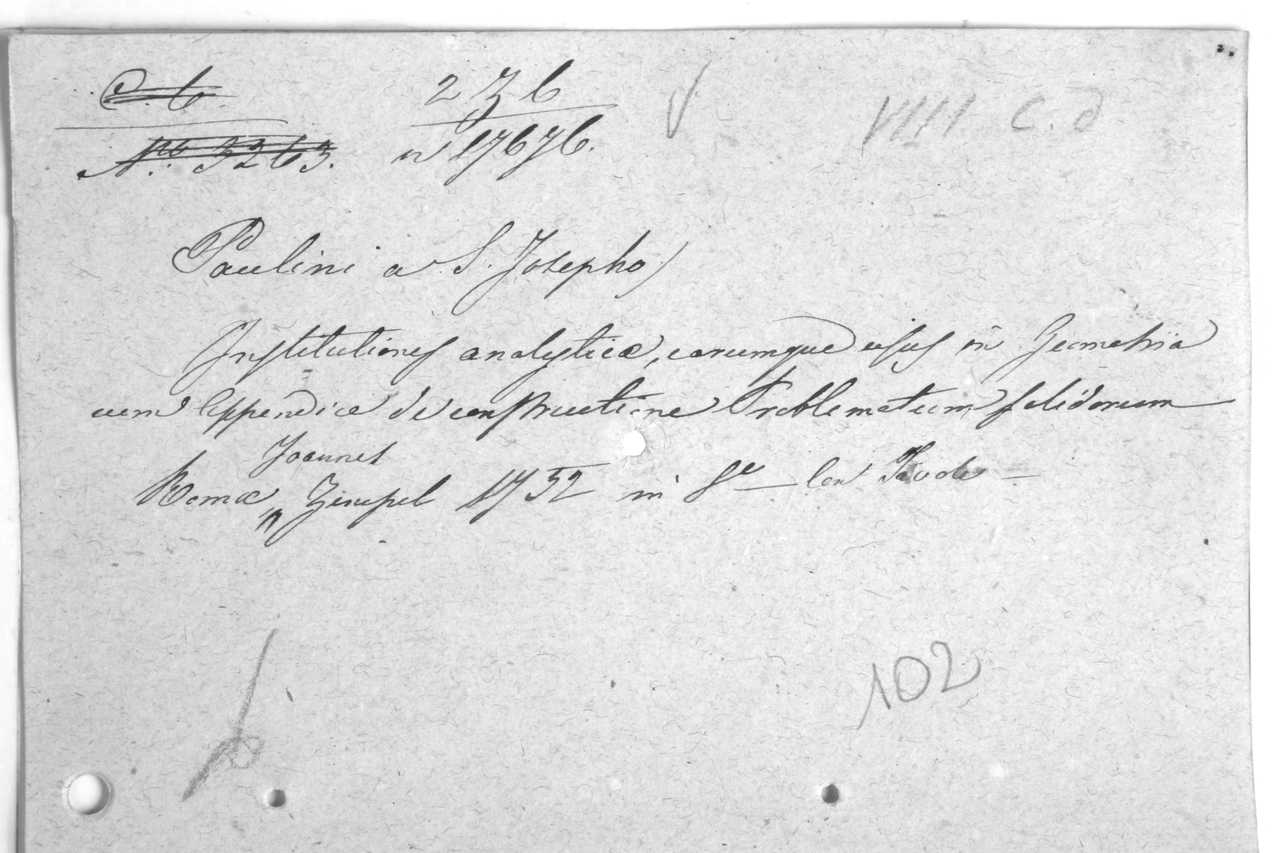 C. 6.
2 Z 6
VIII C. d
No. 3263.
n 17676.
Paulini a S. Josepho)
Institutiones analyticæ, earumque usus in Geometria
cum Appendice de constructione Problematum solidorum
Joannes
Romæ „ Zempel 1752 in 8º con Tavole
102